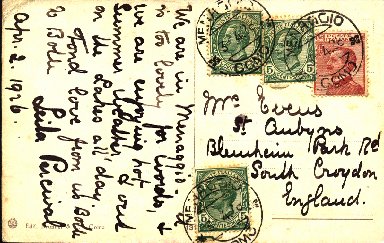 We are in Menaggio - it
is to lovely for words, &
we are enjoying hot
Summer weather, & out
on the Lakes all day.
Fond love from us Both
to Both Leila Percival
Apr. 2. 1926.
MENAGGIO
COMO
Mrs Evens
St Aubyns
Blenheim Park Rd
South Croydon
England.